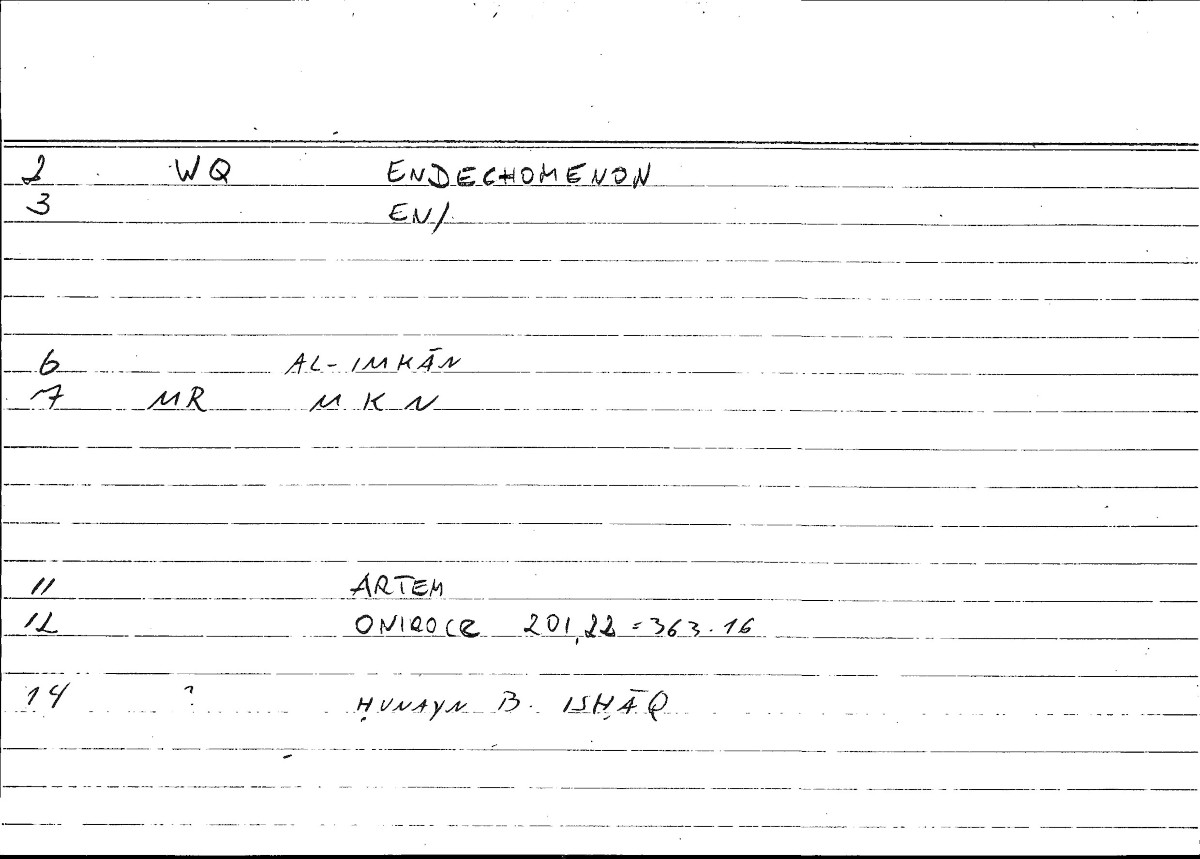 2 WQ ENDECHOMENON
3 EN/
6 AL-IMKĀN
7 MR M K N
11 ARTEM
12 ONIROCR 201,22 = 363.16
14 ? ḤUNAYN B. ISḤĀQ